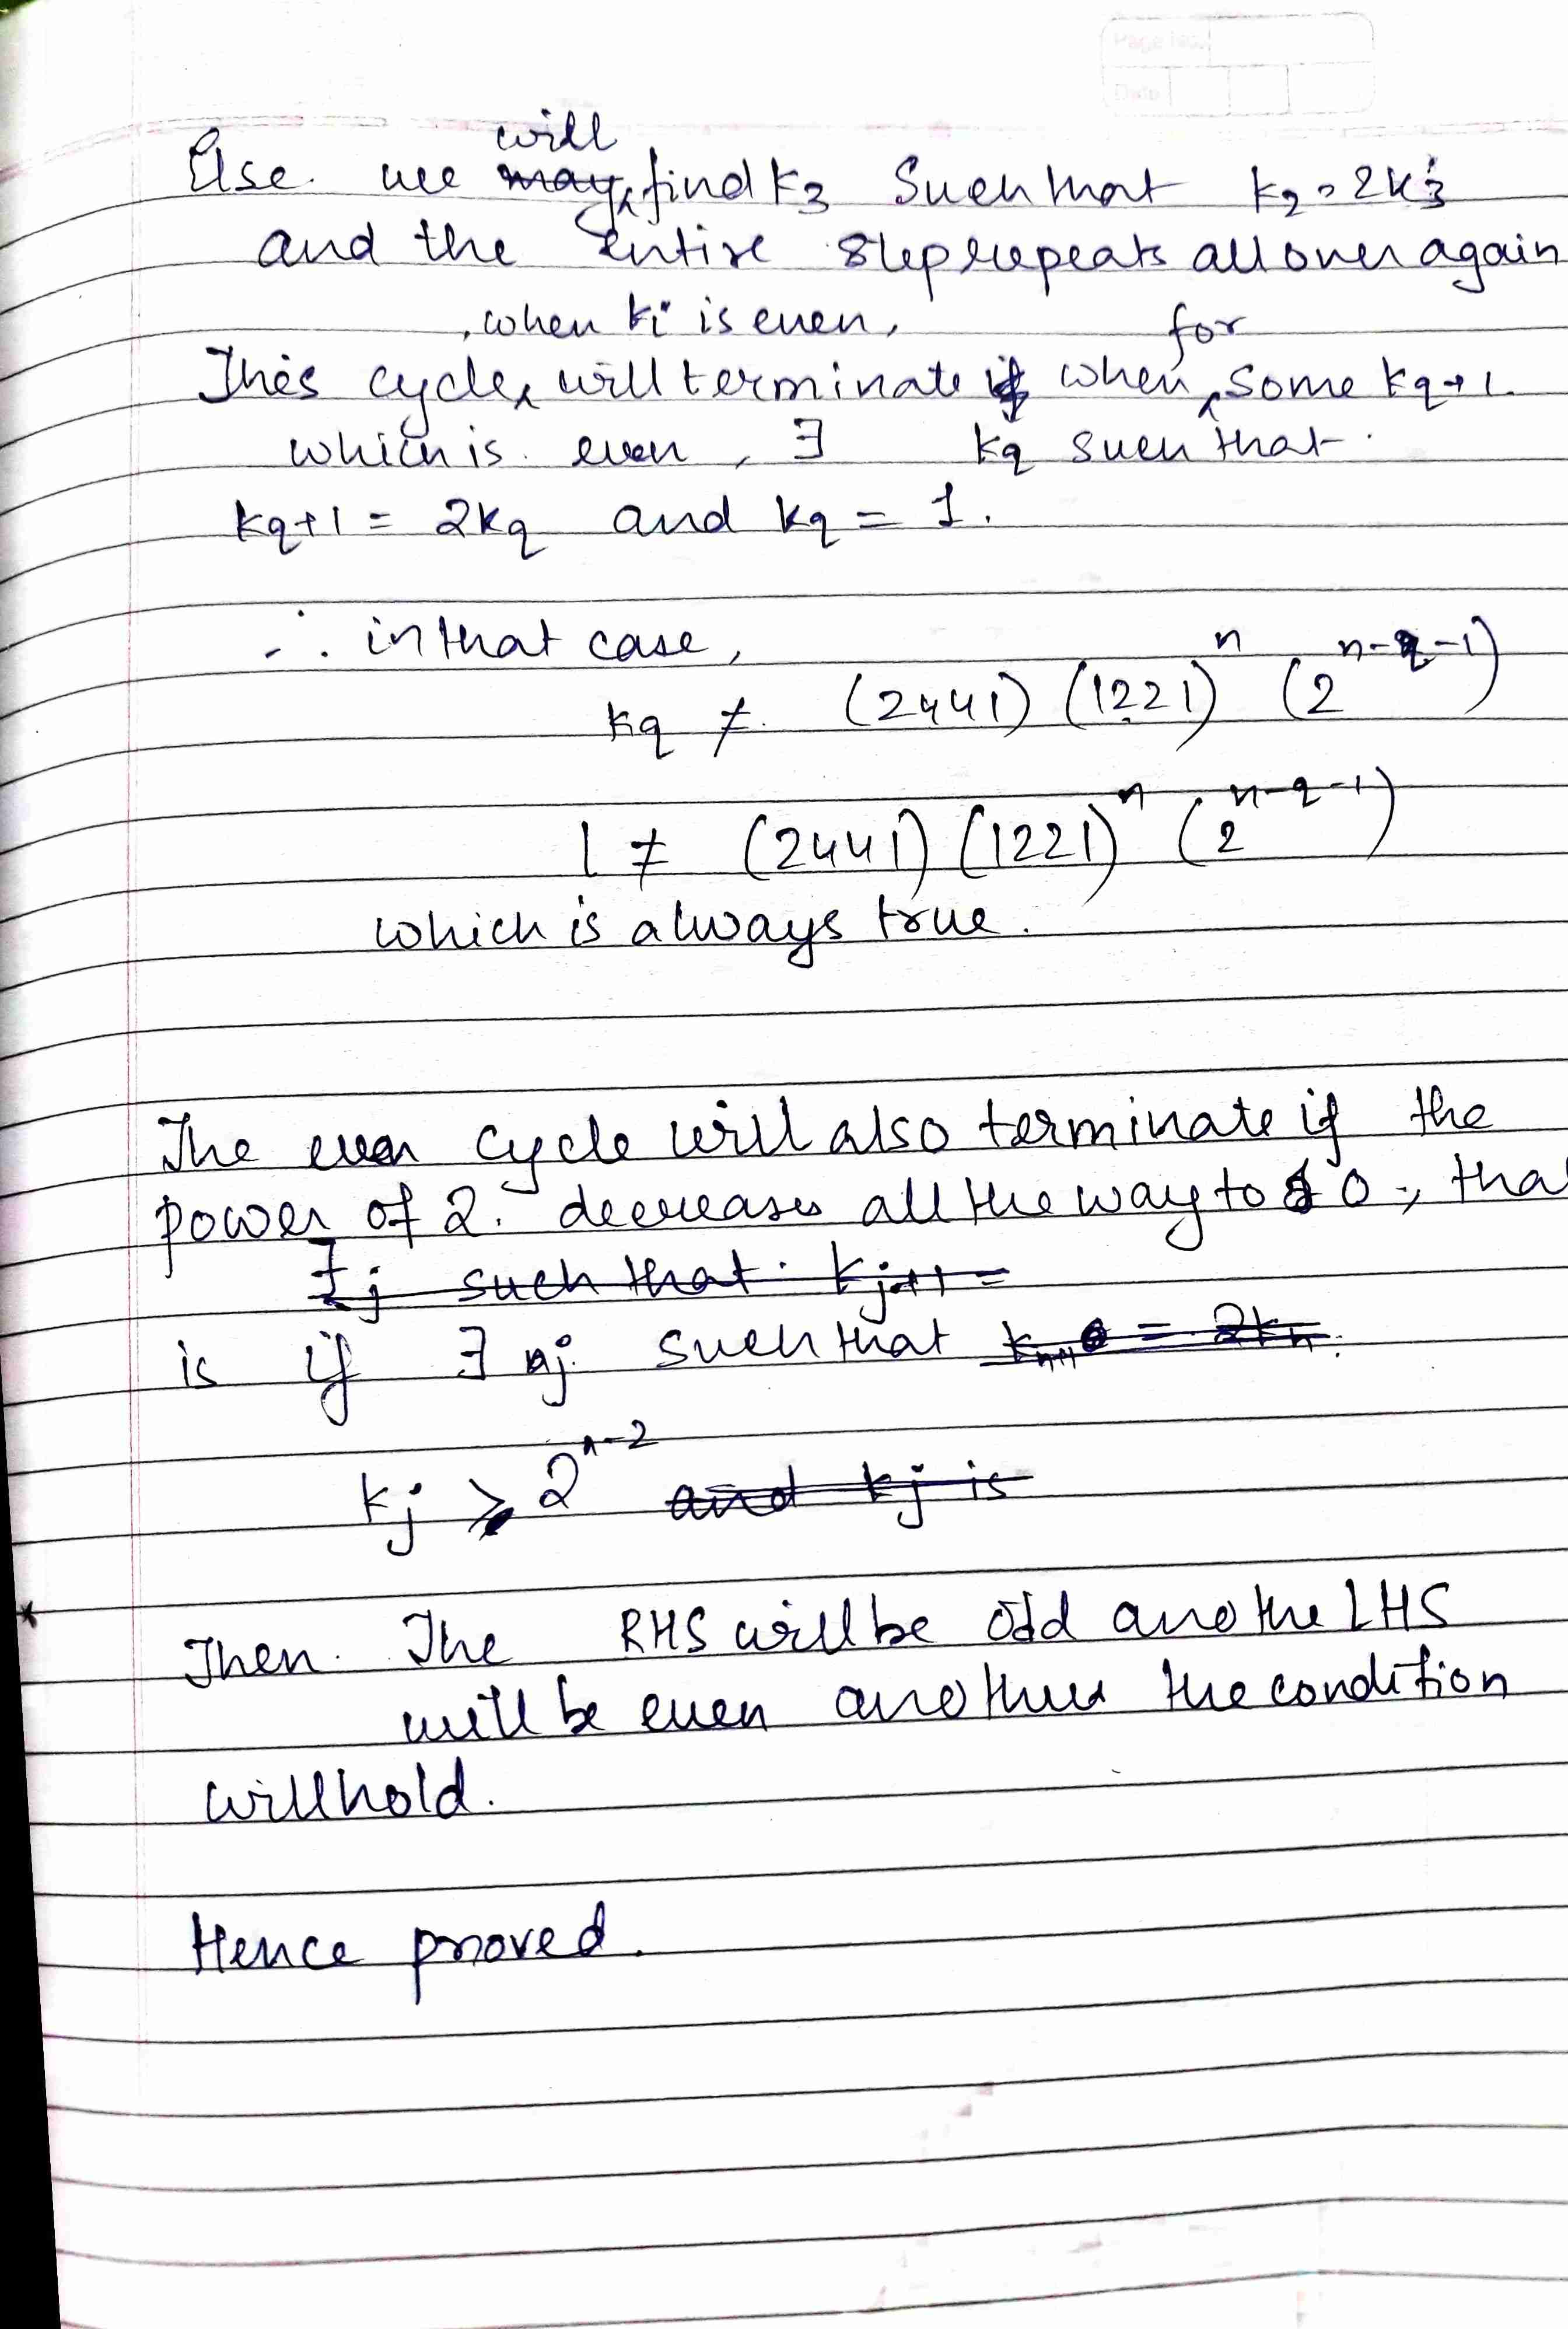 Page No.
Date
will
Else we may find k3 Such that k2 = 2k3
and the entire step repeats all over again
, when ki is even,
for
This cycle, will terminate if when, some kq+1.
which is even, ∃ kq such that.
kq+1 = 2kq and kq = 1.
∴ in that case,
kq ≠ (2441) (1221)^n (2^n-q-1)
1 ≠ (2441) (1221)^n (2^n-q-1)
which is always true.
The even cycle will also terminate if the
power of 2. decreases all the way to 0, that
∃j such that kj+1 =
is if ∃ j such that kn+1 = 2kn.
kj ⩾ 2^n-2 and kj is
Then. The RHS will be odd and the LHS
will be even and thus the condition
will hold.
Hence proved.